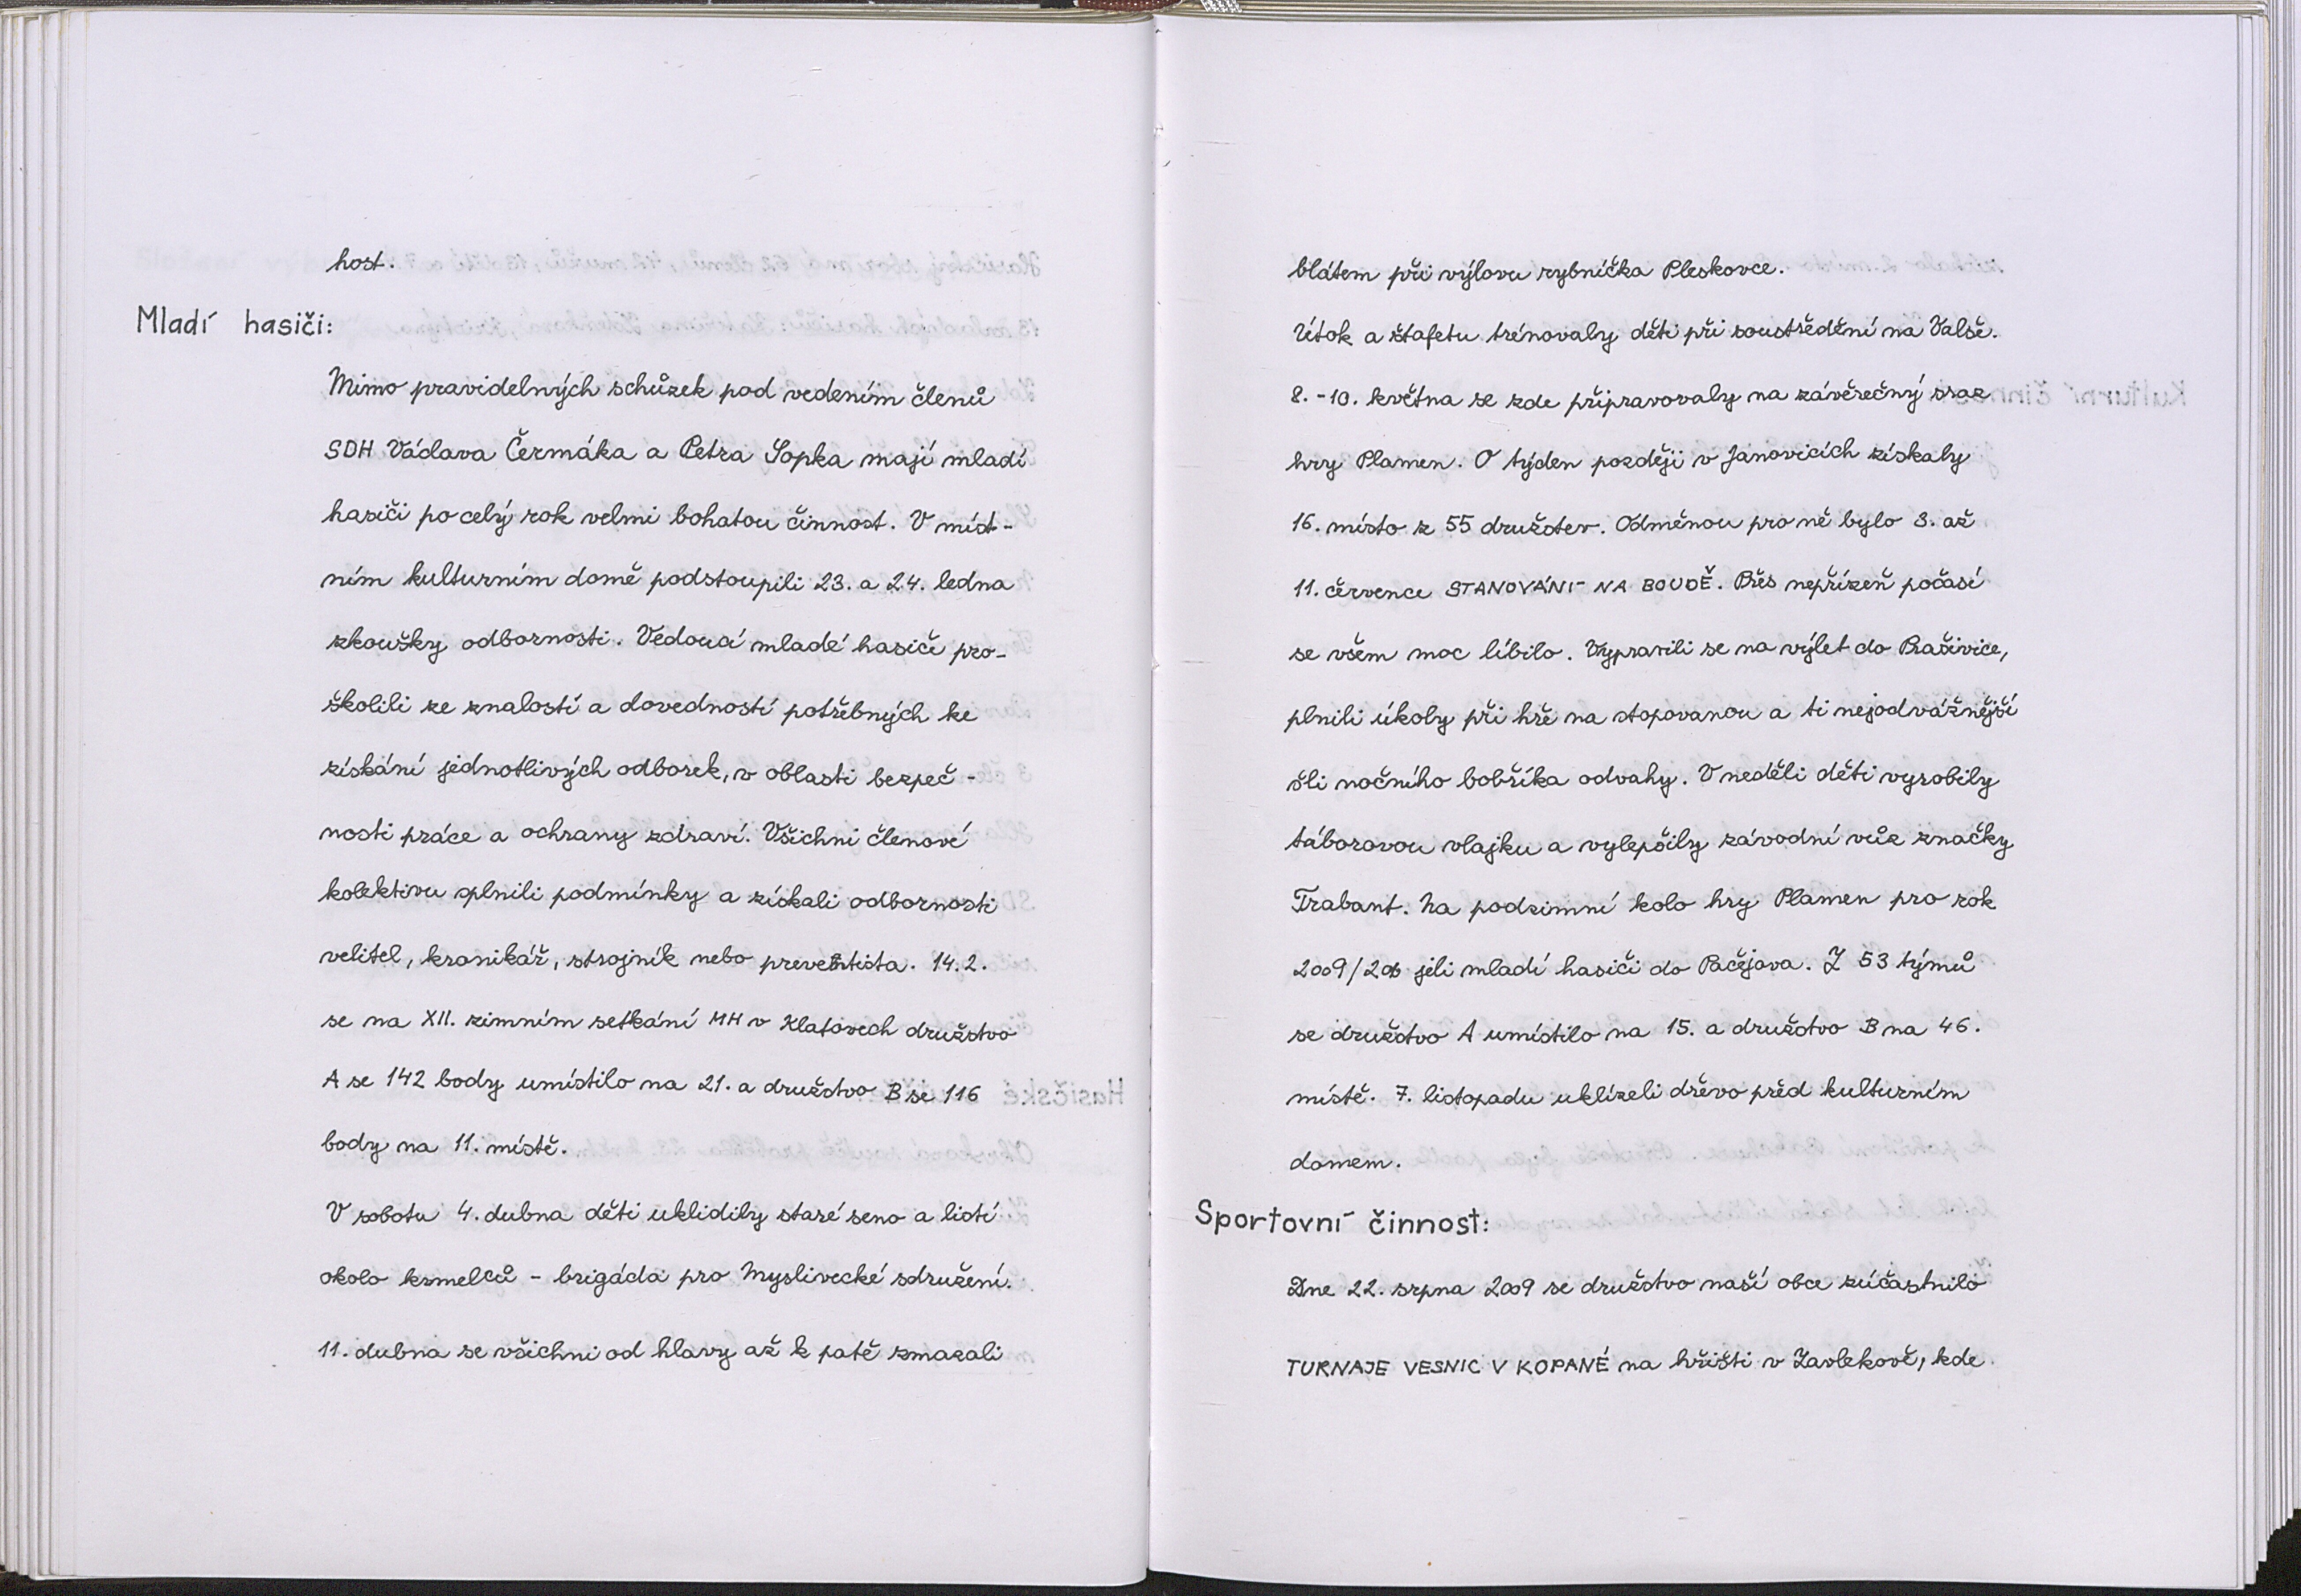 host.
Mladí hasiči:
Mimo pravidelných schůzek pod vedením členů
SDH Václava Čermáka a Petra Sopka mají mladí
hasiči po celý rok velmi bohatou činnost. V míst-
ním kulturním domě podstoupili 23. a 24. ledna
zkoušky odbornosti. Vedoucí mladé hasiče pro-
školili ze znalostí a dovedností potřebných ke
získání jednotlivých odborek, v oblasti bezpeč-
nosti práce a ochrany zdraví. Všichni členové
kolektivu splnili podmínky a získali odbornosti
velitel, kronikář, strojník nebo preventista. 14.2.
se na XII. zimním setkání MH v Klatovech družstvo
A se 142 body umístilo na 21. a družstvo B se 116
body na 11. místě.
V sobotu 4. dubna děti uklidily staré seno a listí
okolo krmelců - brigáda pro Myslivecké sdružení.
11. dubna se všichni od hlavy až k patě zmazali
blátem při výlovu rybníčka Pleskovce.
Útok a štafetu trénovaly děti při soustředění na Valše.
8. - 10. května se zde připravovaly na závěrečný sraz
hry Plamen. O týden později v Janovicích získaly
16. místo z 55 družstev. Odměnou pro ně bylo 8. až
11. července STANOVÁNÍ NA BOUDĚ. Přes nepřízeň počasí
se všem moc líbilo. Vypravili se na výlet do Prašivice,
plnili úkoly při hře na stopovanou a ti nejodvážnější
šli nočního bobříka odvahy. V neděli děti vyrobily
táborovou vlajku a vylepšily závodní vůz značky
Trabant. Na podzimní kolo hry Plamen pro rok
2009/2010 jeli mladí hasiči do Pačejova. Z 53 týmů
se družstvo A umístilo na 15. a družstvo B na 46.
místě. 7. listopadu uklízeli dřevo před kulturním
domem.
Sportovní činnost:
Dne 22. srpna 2009 se družstvo naší obce zúčastnilo
TURNAJE VESNIC V KOPANÉ na hřišti v Zavlekově, kde